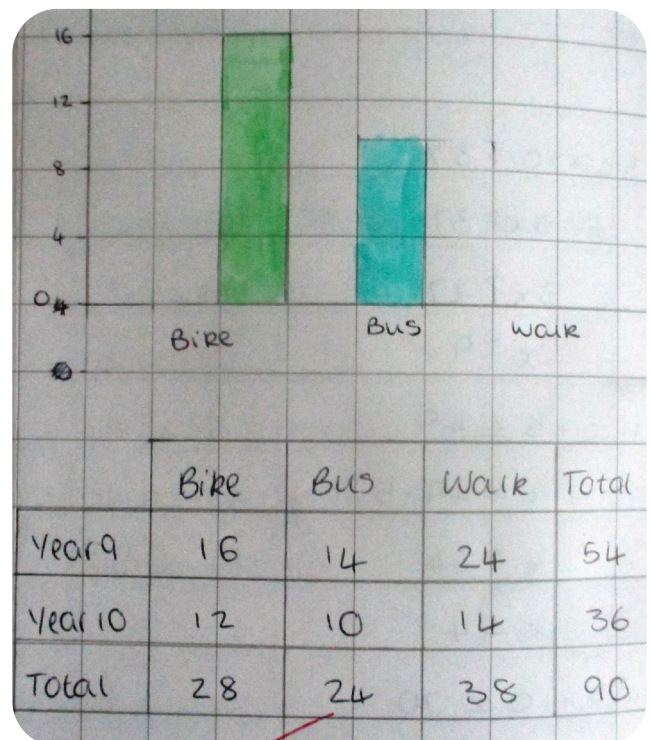 16
12
8
4
0
Bike Bus Walk
Bike Bus Walk Total
Year 9 16 14 24 54
Year 10 12 10 14 36
Total 28 24 38 90